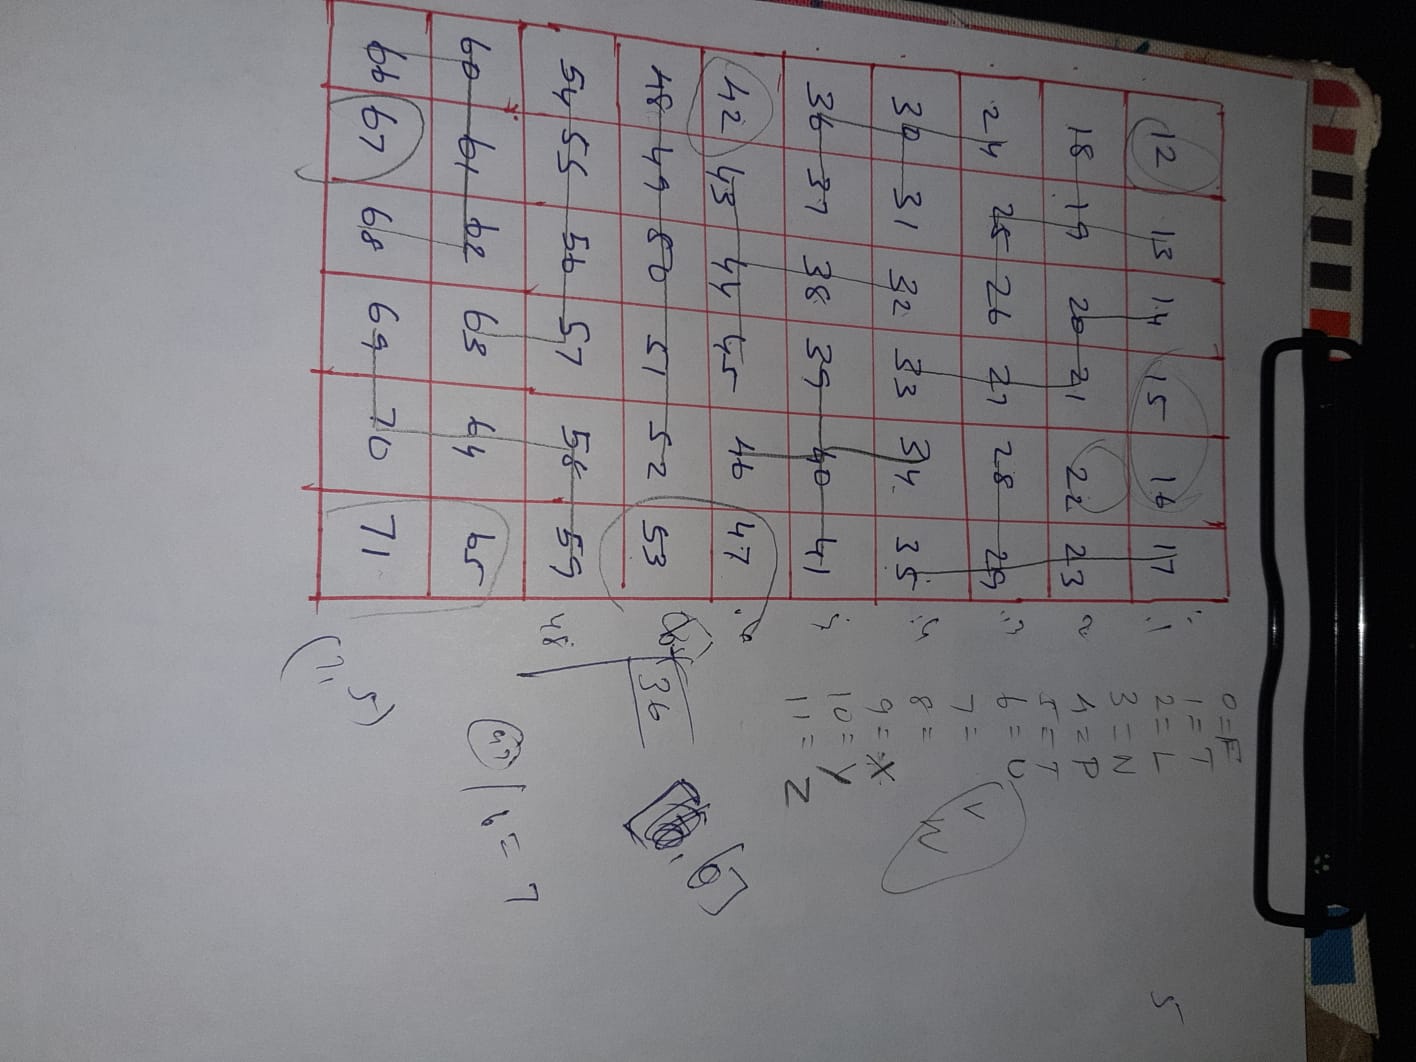 12 13 14 15 16 17
18 19 20 21 22 23
24 25 26 27 28 29
30 31 32 33 34 35
36 37 38 39 40 41
42 43 44 45 46 47
48 49 50 51 52 53
54 55 56 57 58 59
60 61 62 63 64 65
66 67 68 69 70 71
.1
2
.3
0=F
1=T
2=L
3=N
4=P
5=T
6=U
7=
8=
9=X
10=Y
11=Z
V
W
5
36
48
, 6]
/6=7
(7,5)